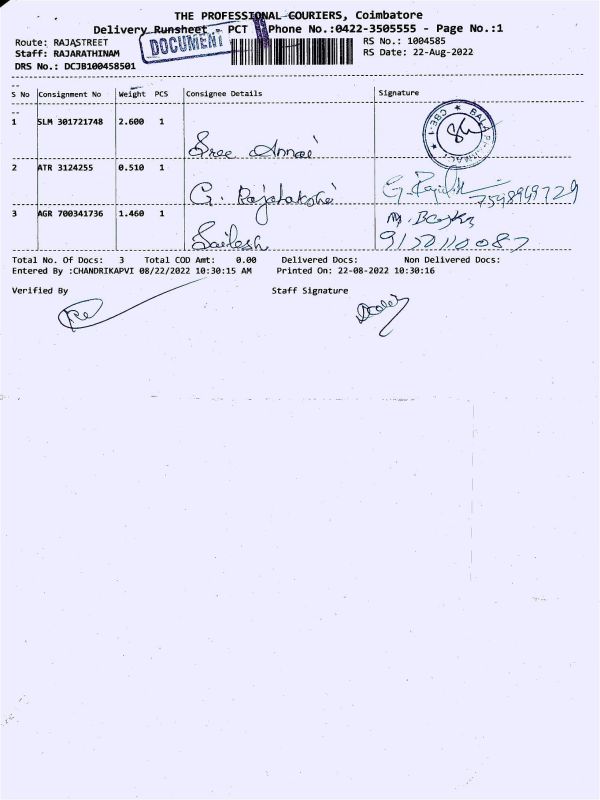 THE PROFESSIONAL COURIERS, Coimbatore
Delivery Runsheet - PCT Phone No.:0422-3505555 - Page No.:1
Route: RAJASTREET RS No.: 1004585
DOCUMENT
Staff: RAJARATHINAM RS Date: 22-Aug-2022
DRS No.: DCJB100458501
S No Consignment No Weight PCS Consignee Details Signature
1 SLM 301721748 2.600 1
Sree Annai
2 ATR 3124255 0.510 1
G. Rajalakshmi
7548949729
3 AGR 700341736 1.460 1
Sailesh
Total No. Of Docs: 3 Total COD Amt: 0.00 Delivered Docs: Non Delivered Docs:
Entered By :CHANDRIKAPVI 08/22/2022 10:30:15 AM Printed On: 22-08-2022 10:30:16
Verified By Staff Signature